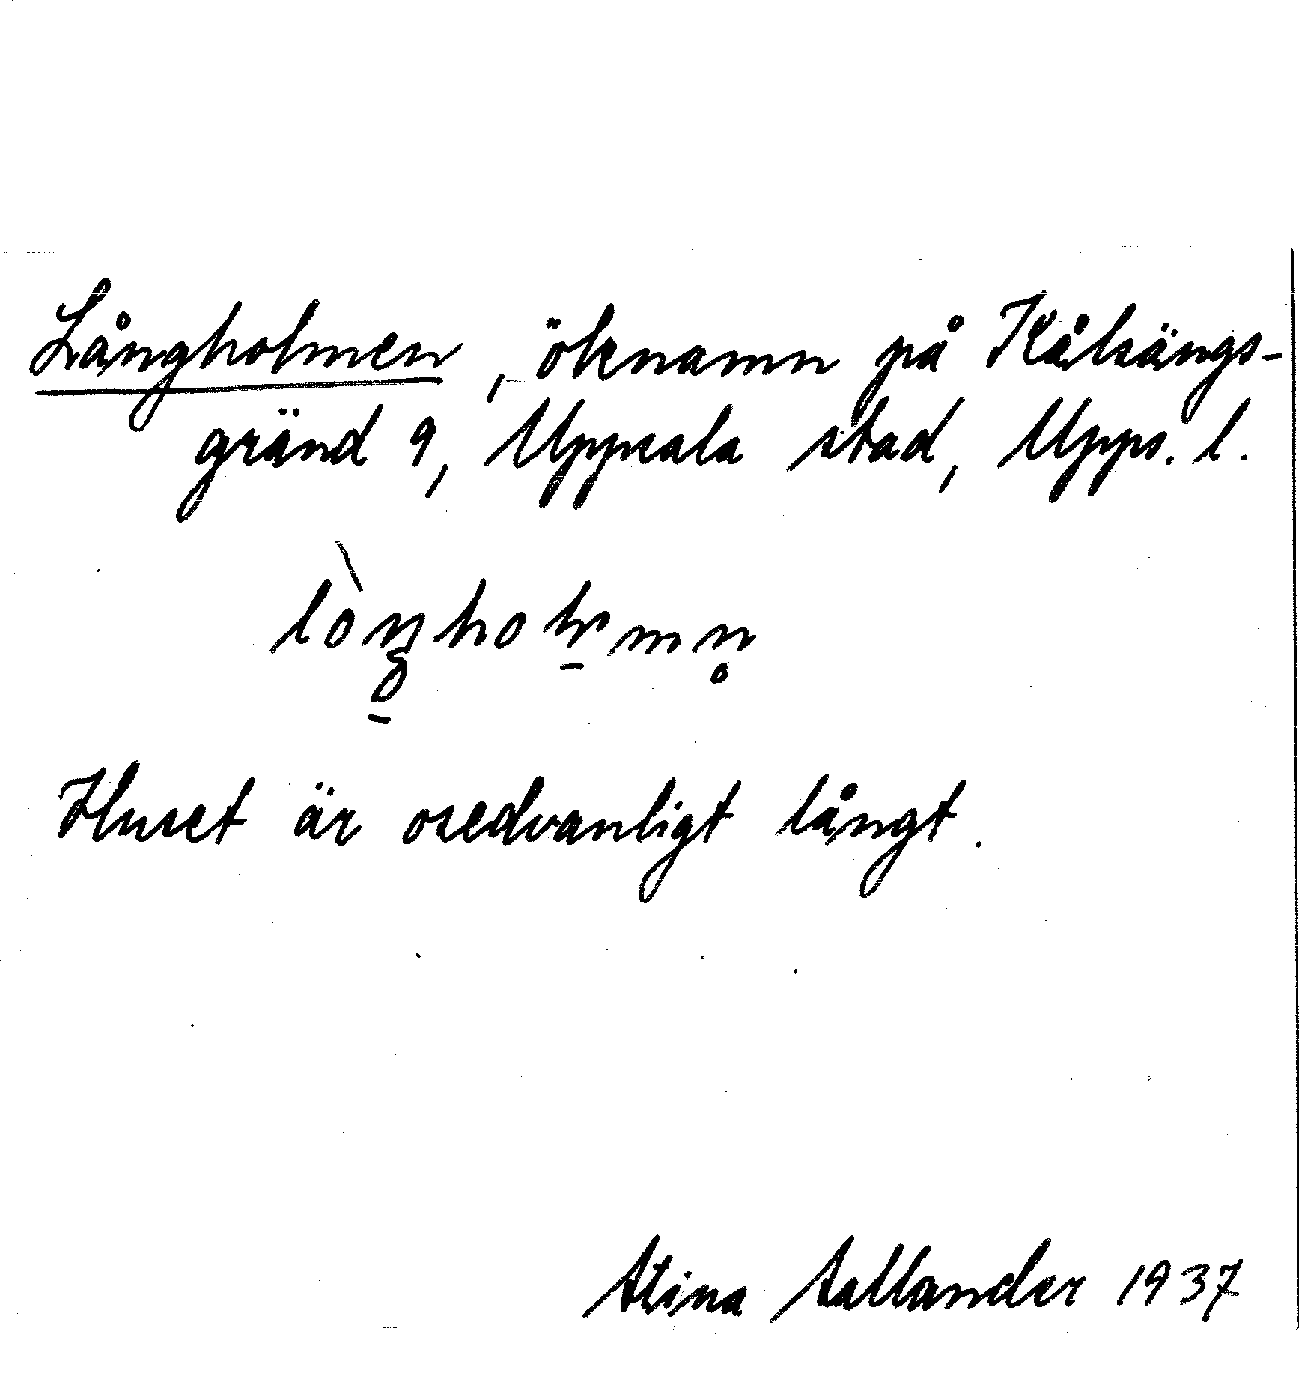 Långholmen, öknamn på Kålsängs-
gränd 9, Uppsala stad, Upps. l.
lòŋholmn̥
Huset är osedvanligt långt.
Stina Sallander 1937